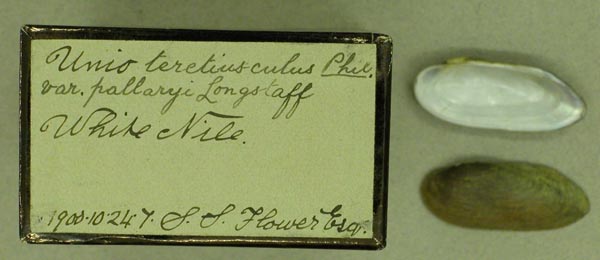 Unio teretiusculus Phil.
var. pallaryi Longstaff
White Nile.
1900.10.24.7. S. S. Flower Esq.